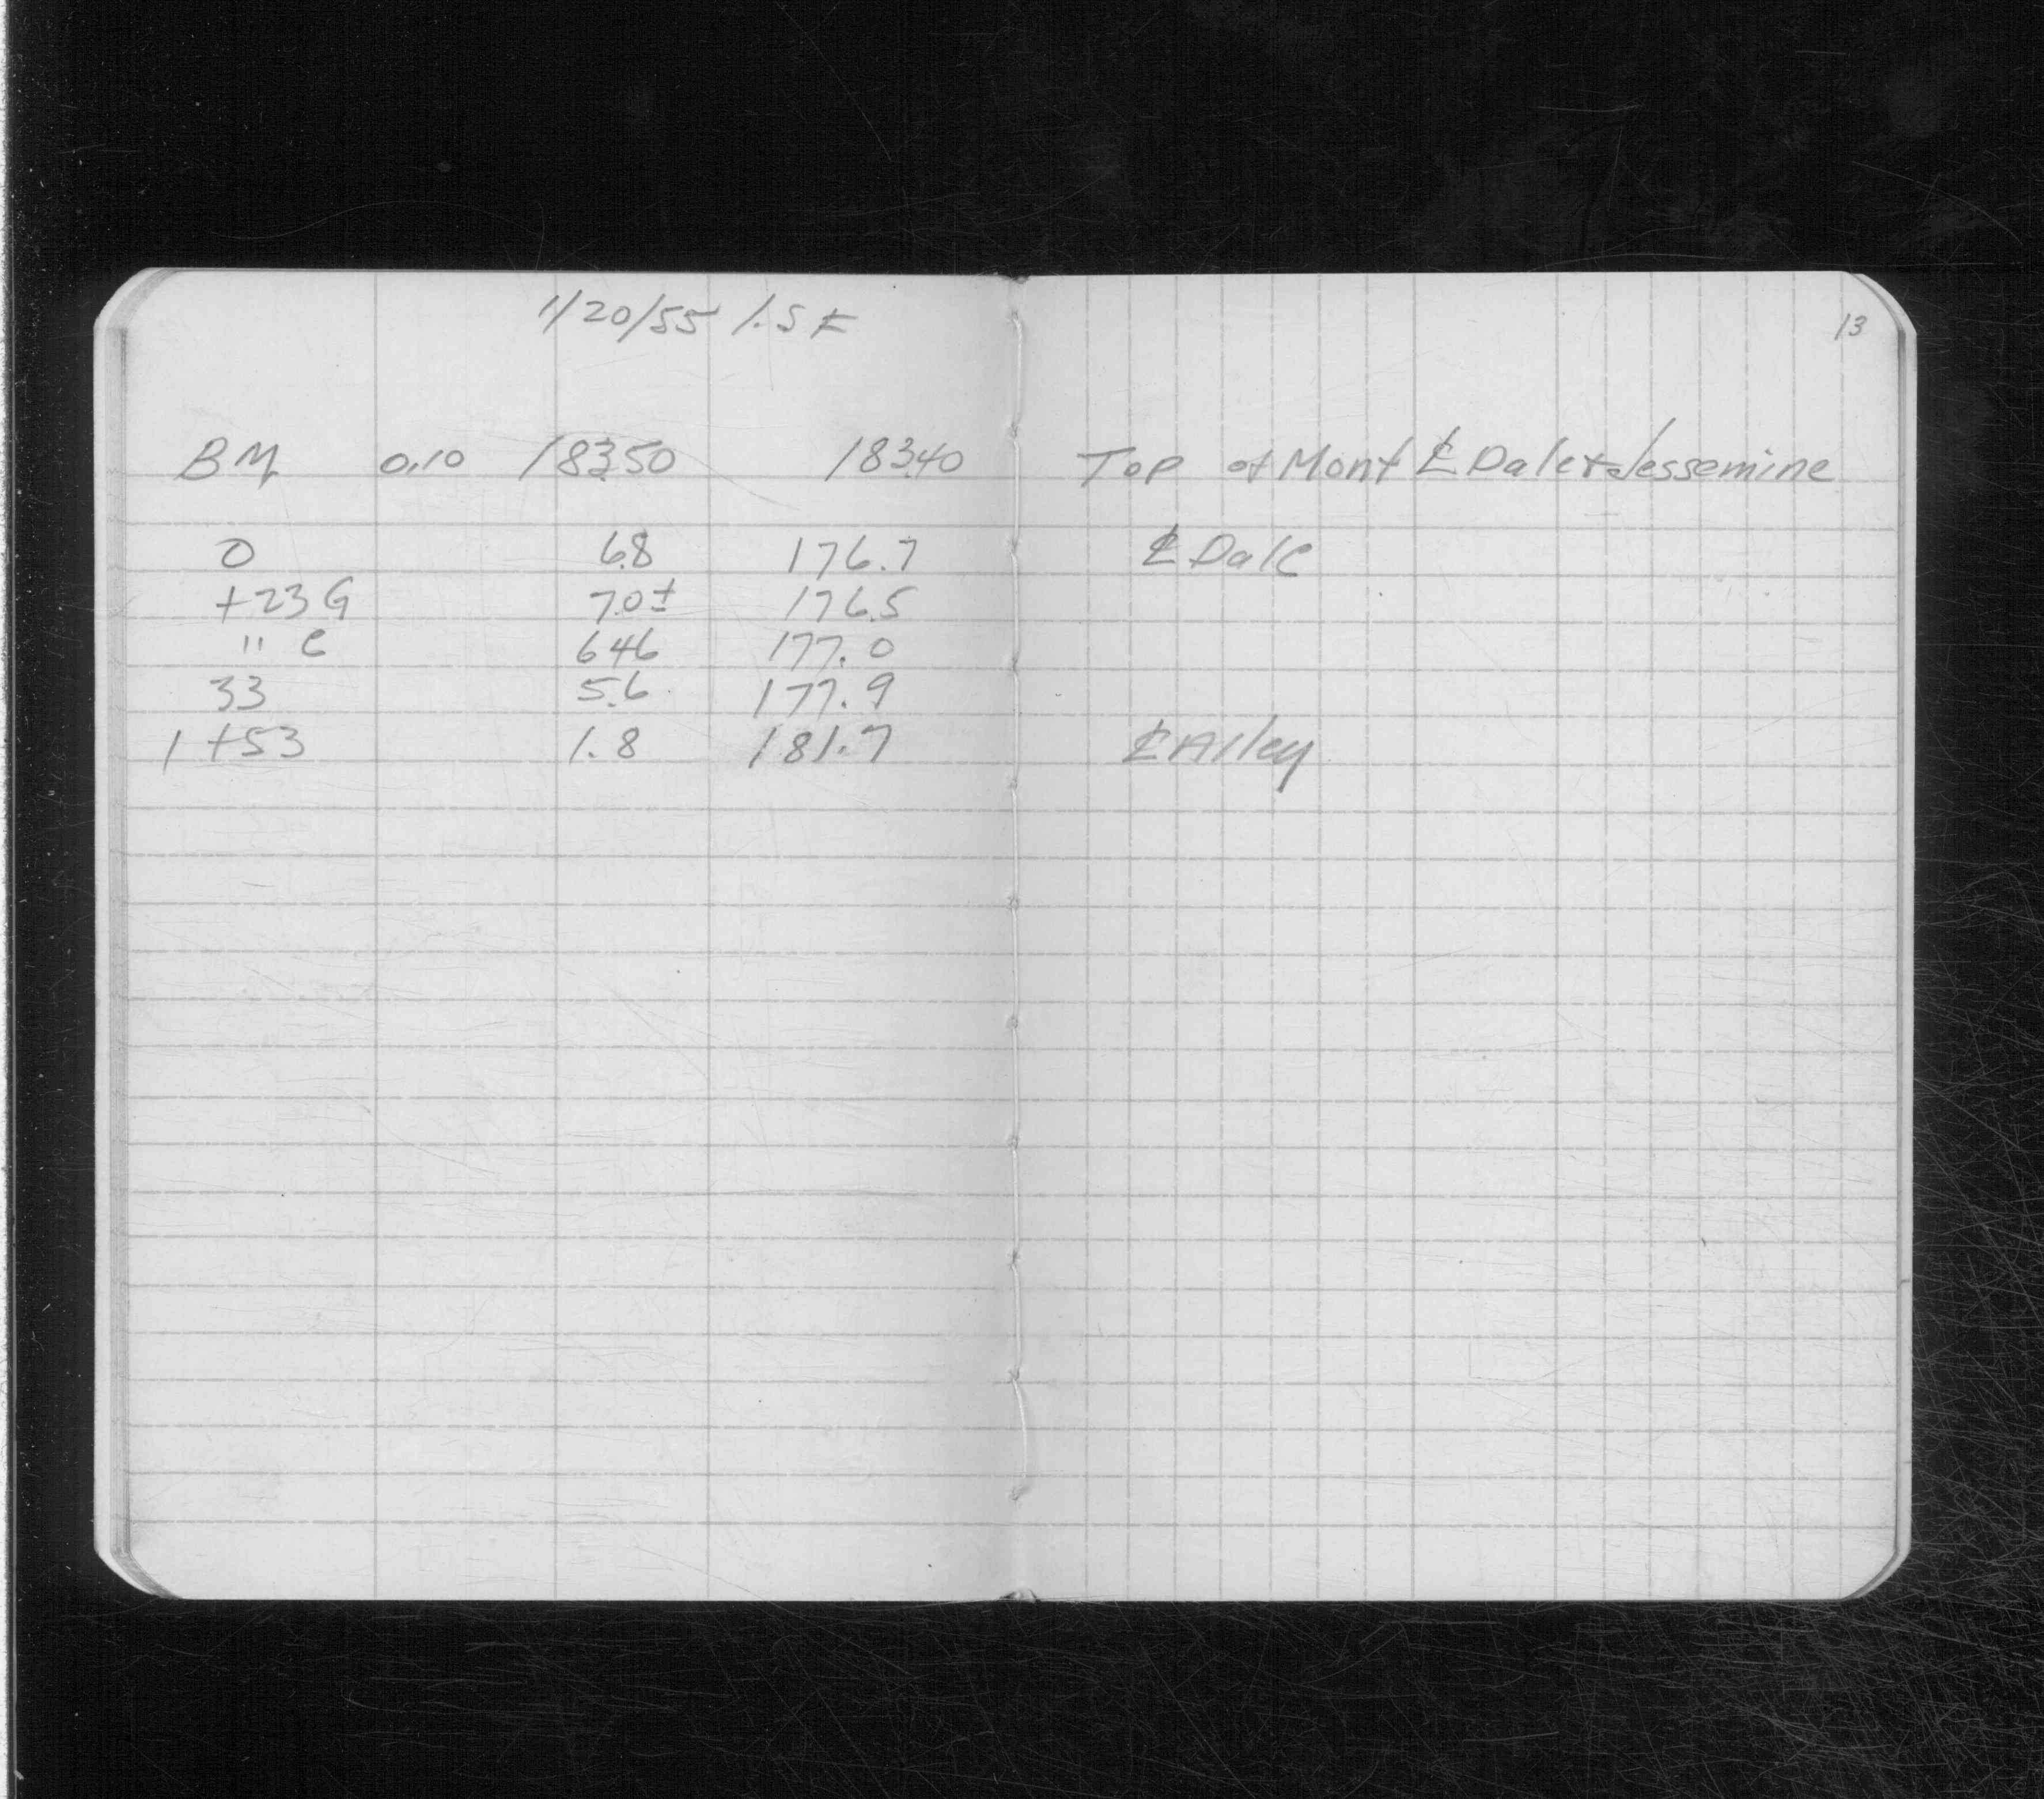 1/20/55 I.S.F
13
BM 0.10 183.50 183.40 Top of Mont ℄ Dale + Jessemine
0 6.8 176.7 ℄ Dale
+23 G 7.0± 176.5
" C 6.46 177.0
33 5.6 177.9
1+53 1.8 181.7 ℄ Alley